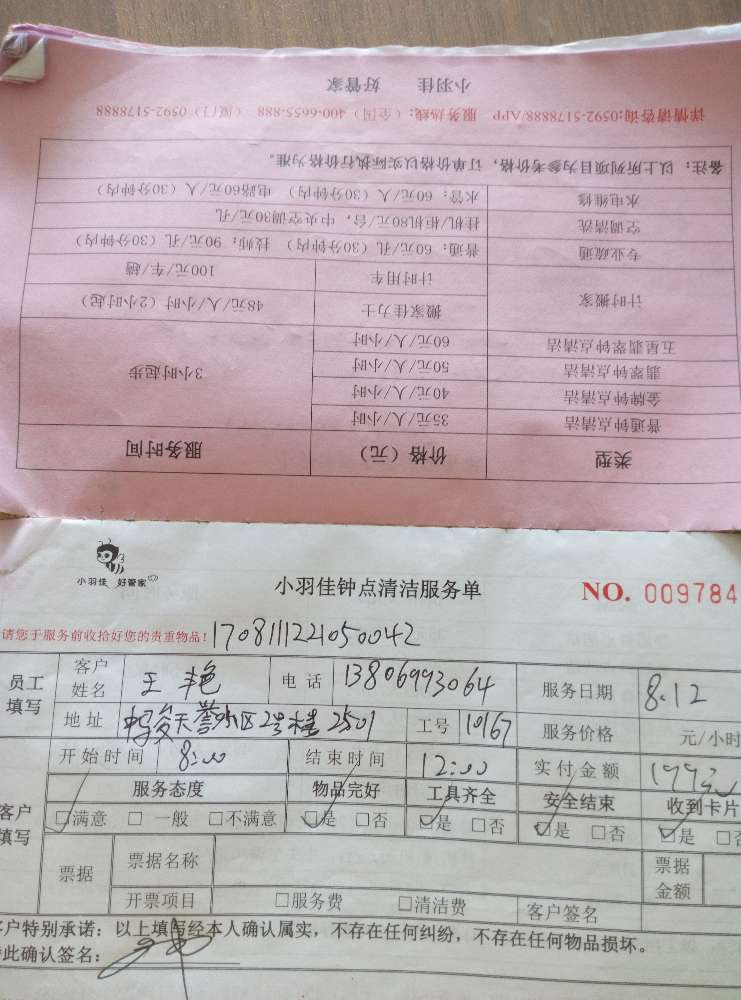 小羽佳 好管家
详情请咨询:0592-5178888/APP 服务热线:(全国)400-6655-888 (厦门)0592-5178888
备注:以上所列项目为参考价格,订单价格以实际执行价格为准。
水电维修 水管:60元/人(30分钟内) 电路60元/人(30分钟内)
空调清洗 挂机/柜机80元/台,中央空调30元/孔
专业疏通 普通:60元/孔(30分钟内) 技师:90元/孔(30分钟内)
计时搬家 计时用车 100元/车/趟
搬家佳力士 48元/人/小时(2小时起)
五星翡翠钟点清洁 60元/人/小时
翡翠钟点清洁 50元/人/小时
金牌钟点清洁 40元/人/小时
普通钟点清洁 35元/人/小时
3小时起步
类型 价格(元) 服务时间
小羽佳 好管家
小羽佳钟点清洁服务单
NO. 009784
请您于服务前收拾好您的贵重物品! 1708111221050042
员工填写 客户姓名 王艳 电话 13806993064 服务日期 8.12
地址 2号楼2501 工号 10167 服务价格 元/小时
开始时间 8:00 结束时间 12:00 实付金额
客户填写 服务态度 物品完好 工具齐全 安全结束 收到卡片
□满意 □一般 □不满意 □是 □否 □是 □否 □是 □否 □是 □否
票据 票据名称 票据金额
开票项目 □服务费 □清洁费 客户签名
客户特别承诺:以上填写经本人确认属实,不存在任何纠纷,不存在任何物品损坏。
特此确认签名: